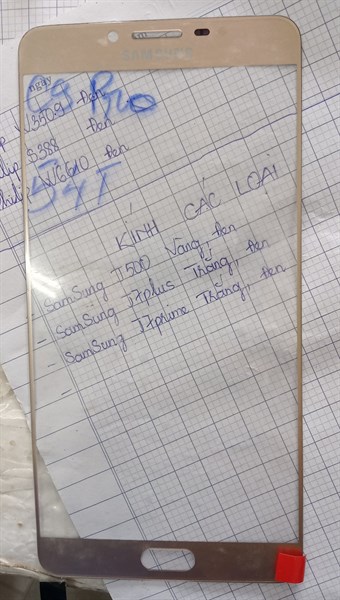 SAMSUNG
ngày
C9 Pro
V3509 đen
S388 đen
V6610 đen
54T
KÍNH CÁC LOẠI
SamSung T500 Vàng, đen
- SamSung J7plus Trắng, đen
- SamSung J7prime Trắng, đen